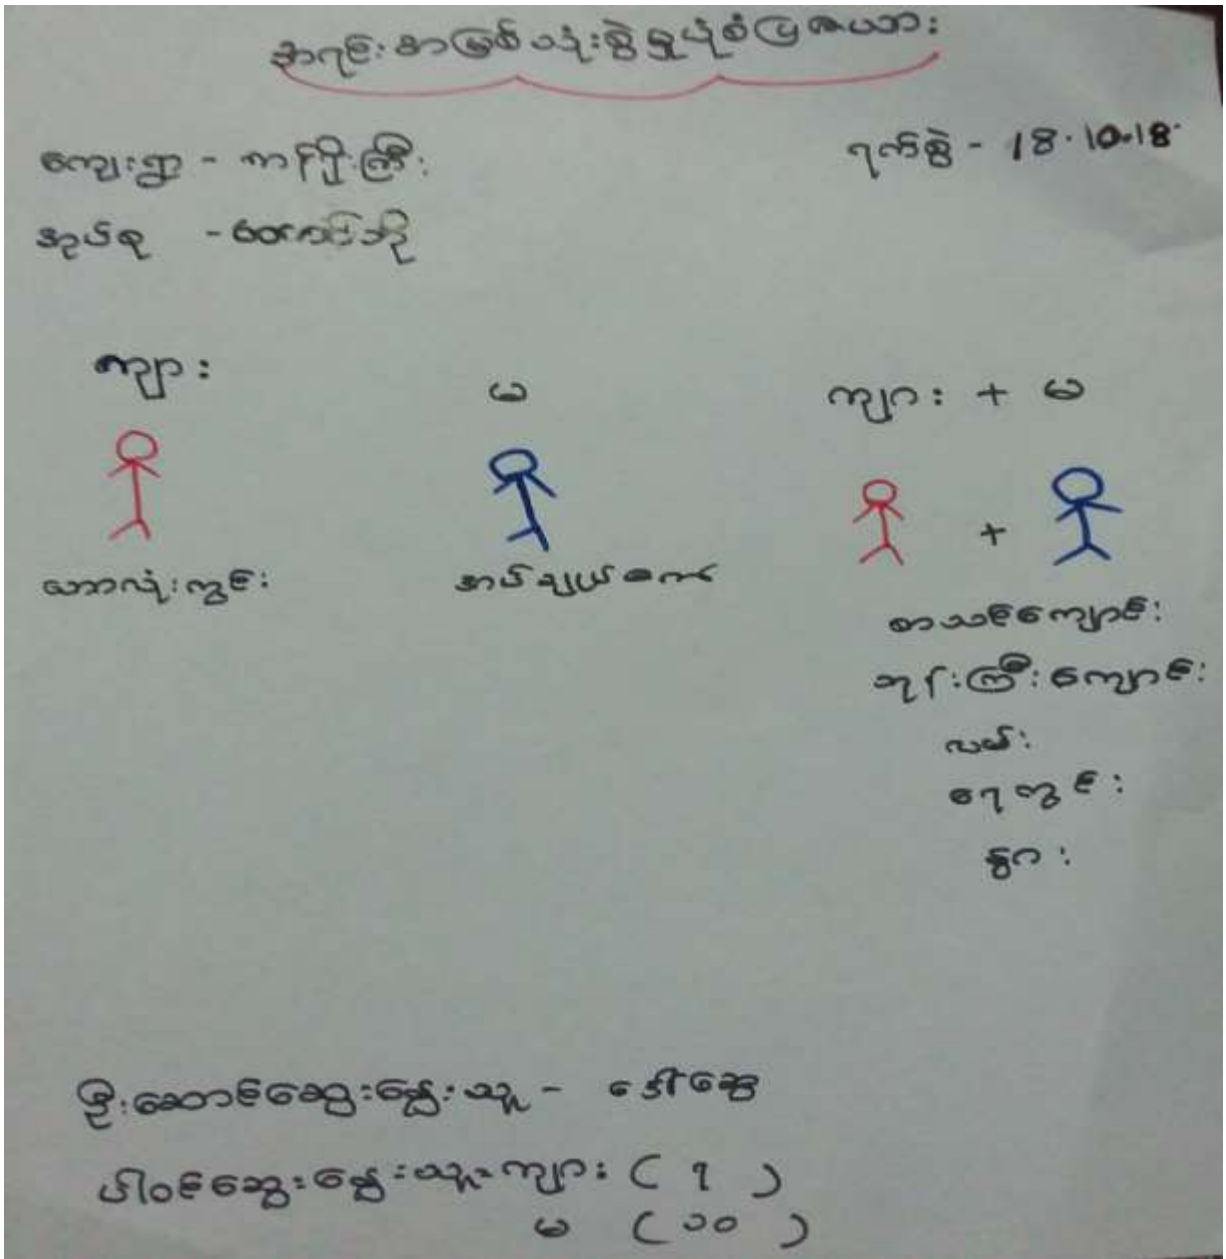 အရင်းအမြစ်သုံးစွဲမှုပုံစံပြဇယား
ကျေးရွာ - ကန်ကြီး ရက်စွဲ - 18.10.18
အုပ်စု -
ကျား မ ကျား + မ
+
ဘောလုံးကွင်း အပ်ချုပ်စက် စာသင်ကျောင်း
ဘုန်းကြီးကျောင်း
လမ်း
ရေတွင်း
နွား
ဦးဆောင်ဆွေးနွေးသူ - ဒေါ်ဆွေ
ပါဝင်ဆွေးနွေးသူ = ကျား ( ၇ )
မ ( ၁၀ )